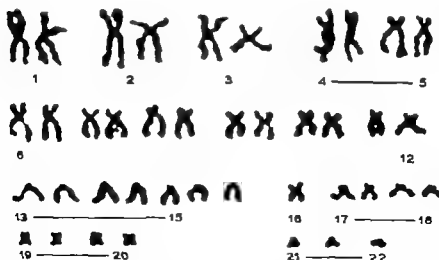 1 2 3 4 5
6 12
13 15 16 17 18
19 20 21 22